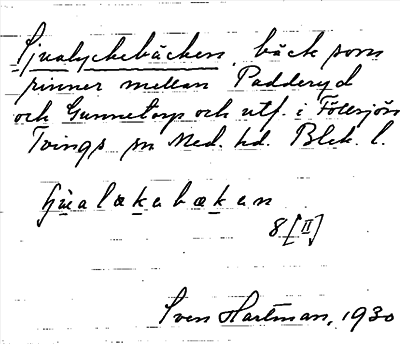 Sjualyckebäcken, bäck som
rinner mellan Padderyd
och Gunnetorp och utf. i Föllsjön
Tvings sn Med. hd. Blek. l.
ɧualækabækan
8 [II]
Sven Hartman, 1930